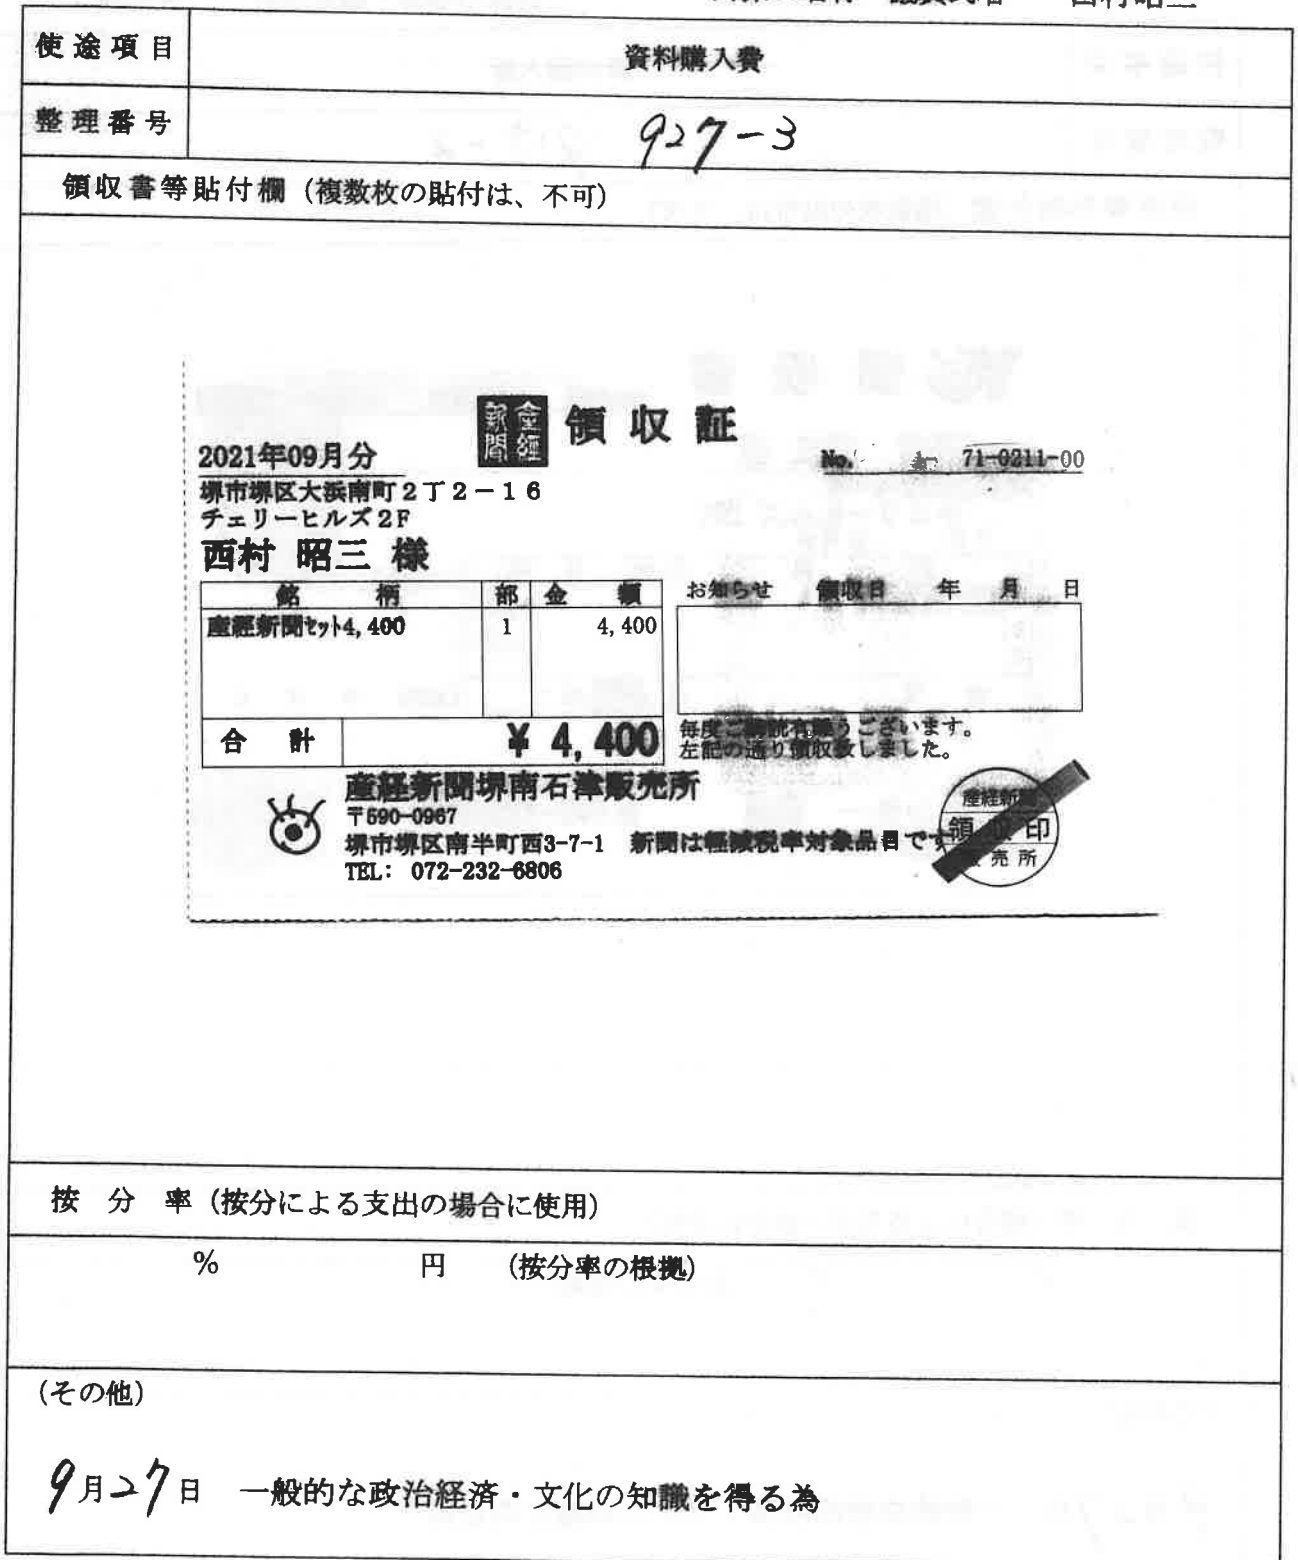 西村昭三
使途項目 資料購入費
整理番号 927-3
領収書等貼付欄（複数枚の貼付は、不可）
産經新聞 領収証
2021年09月分
No. 71-0211-00
堺市堺区大浜南町2丁2-16
チェリーヒルズ2F
西村 昭三 様
銘柄 部 金額
産経新聞セット4,400 1 4,400
合計 ¥4,400
お知らせ 領収日 年 月 日
毎度ご購読有難うございます。
左記の通り領収致しました。
産経新聞堺南石津販売所
〒590-0967
堺市堺区南半町西3-7-1 新聞は軽減税率対象品目です
TEL: 072-232-6806
産経新聞
領収印
売所
按分率（按分による支出の場合に使用）
% 円 （按分率の根拠）
（その他）
9月27日 一般的な政治経済・文化の知識を得る為